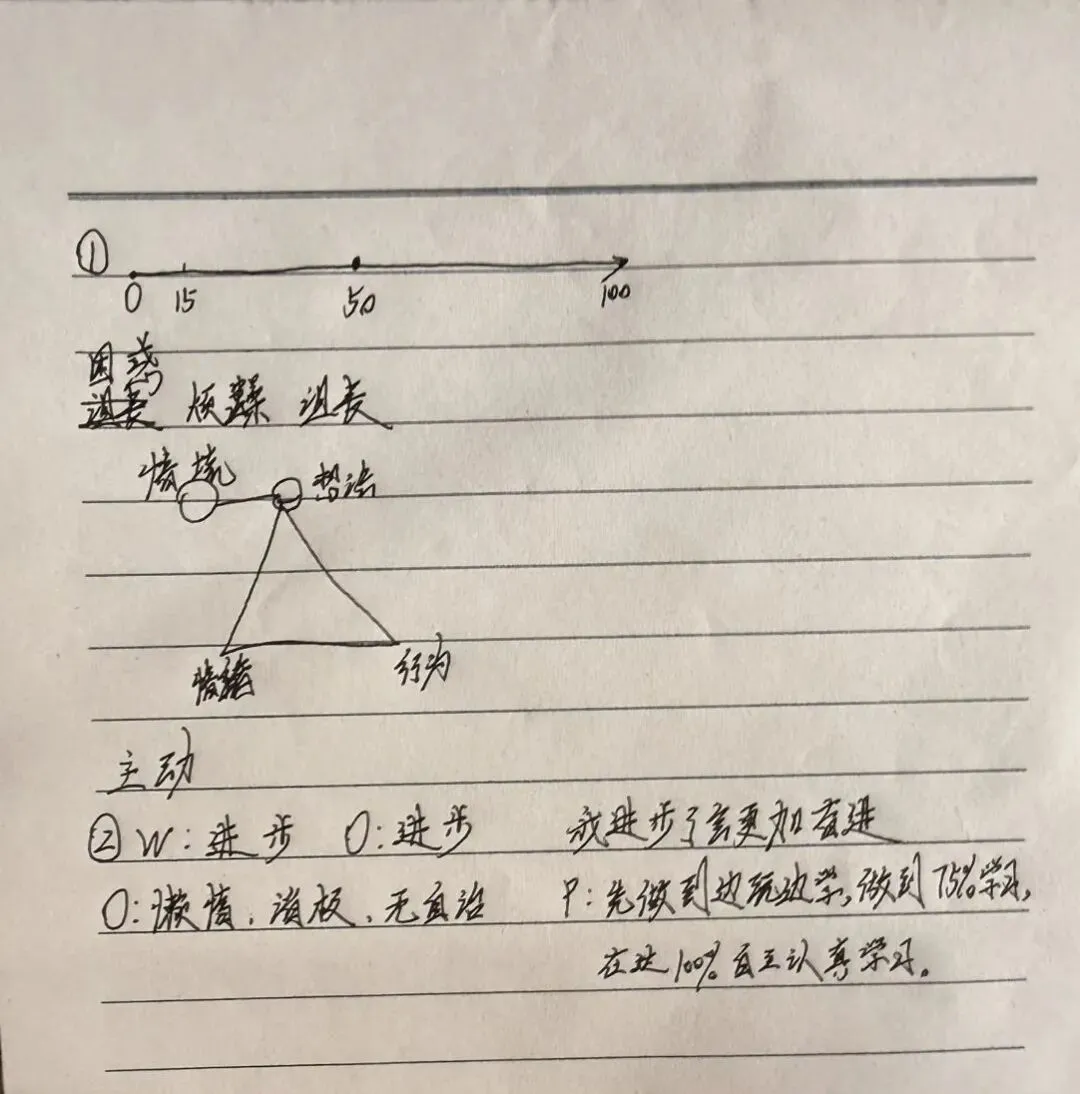 ①
0 15 50 100
困惑
组长 烦躁 组长
情境 想法
情绪 行为
主动
② W:进步 O:进步 我进步了会更加奋进
O:懒惰、消极、无自治 P:先做到边玩边学,做到75%学习,
在达100%自主认真学习。